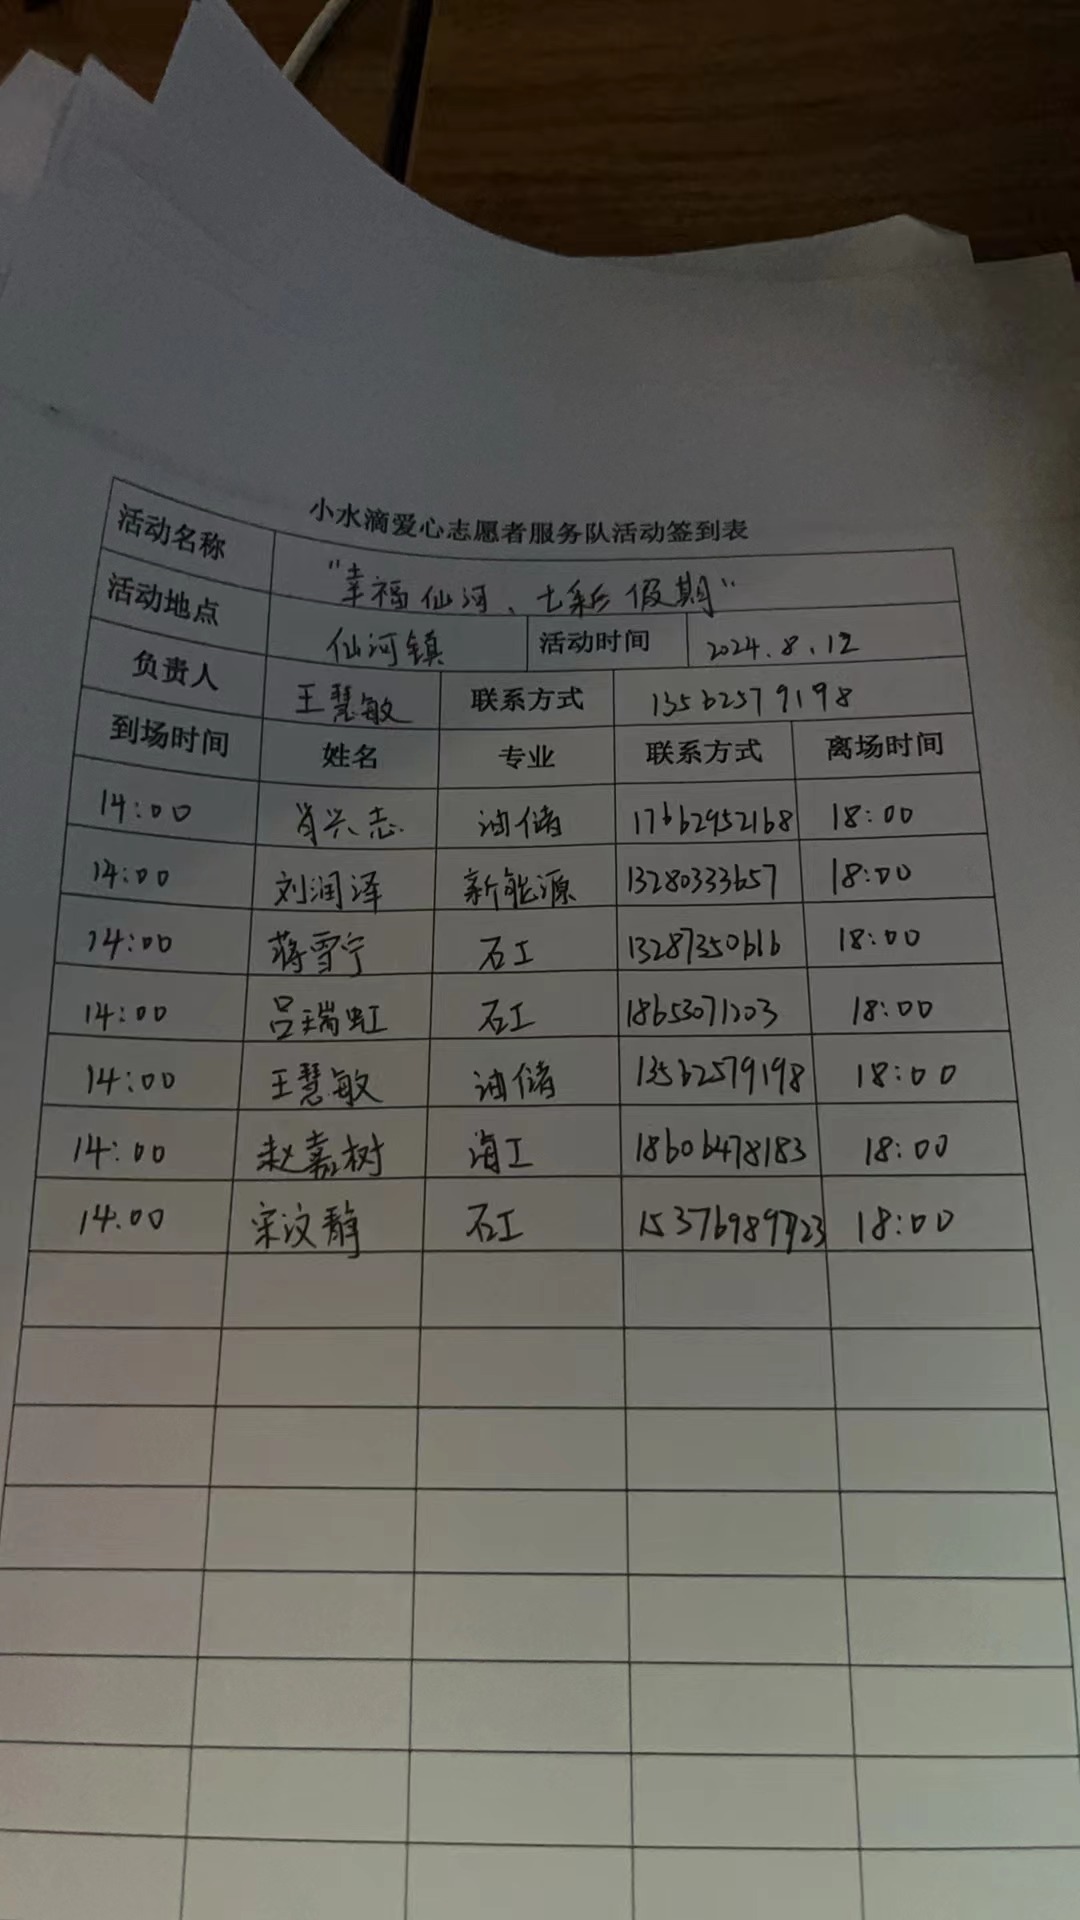 小水滴爱心志愿者服务队活动签到表
活动名称 "幸福仙河、七彩假期"
活动地点 仙河镇 活动时间 2024.8.12
负责人 王慧敏 联系方式 13562579198
到场时间 姓名 专业 联系方式 离场时间
14:00 肖兴志 油储 17662952168 18:00
14:00 刘润泽 新能源 13280333657 18:00
14:00 蒋雪宁 石工 13287350616 18:00
14:00 吕瑞虹 石工 18653071203 18:00
14:00 王慧敏 油储 13562579198 18:00
14:00 赵嘉树 海工 18606478183 18:00
14.00 宋汶静 石工 18:00